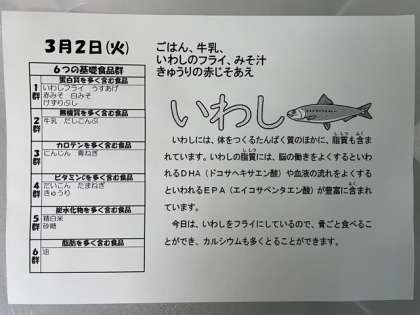 3月2日(火)
ごはん、牛乳、
いわしのフライ、みそ汁
きゅうりの赤じそあえ
6つの基礎食品群
蛋白質を多く含む食品
1群
いわしフライ うすあげ
赤みそ 白みそ
けずりぶし
無機質を多く含む食品
2群
牛乳 だしこんぶ
カロテンを多く含む食品
3群
にんじん 青ねぎ
ビタミンCを多く含む食品
4群
だいこん たまねぎ
きゅうり
炭水化物を多く含む食品
5群
精白米
砂糖
脂肪を多く含む食品
6群
油
いわし
いわしには、体をつくるたんぱく質のほかに、脂質も含ま
れています。いわしの脂質には、脳の働きをよくするといわ
れるDHA(ドコサヘキサエン酸)や血液の流れをよくする
といわれるEPA(エイコサペンタエン酸)が豊富に含まれ
ています。
今日は、いわしをフライにしているので、骨ごと食べるこ
とができ、カルシウムも多くとることができます。